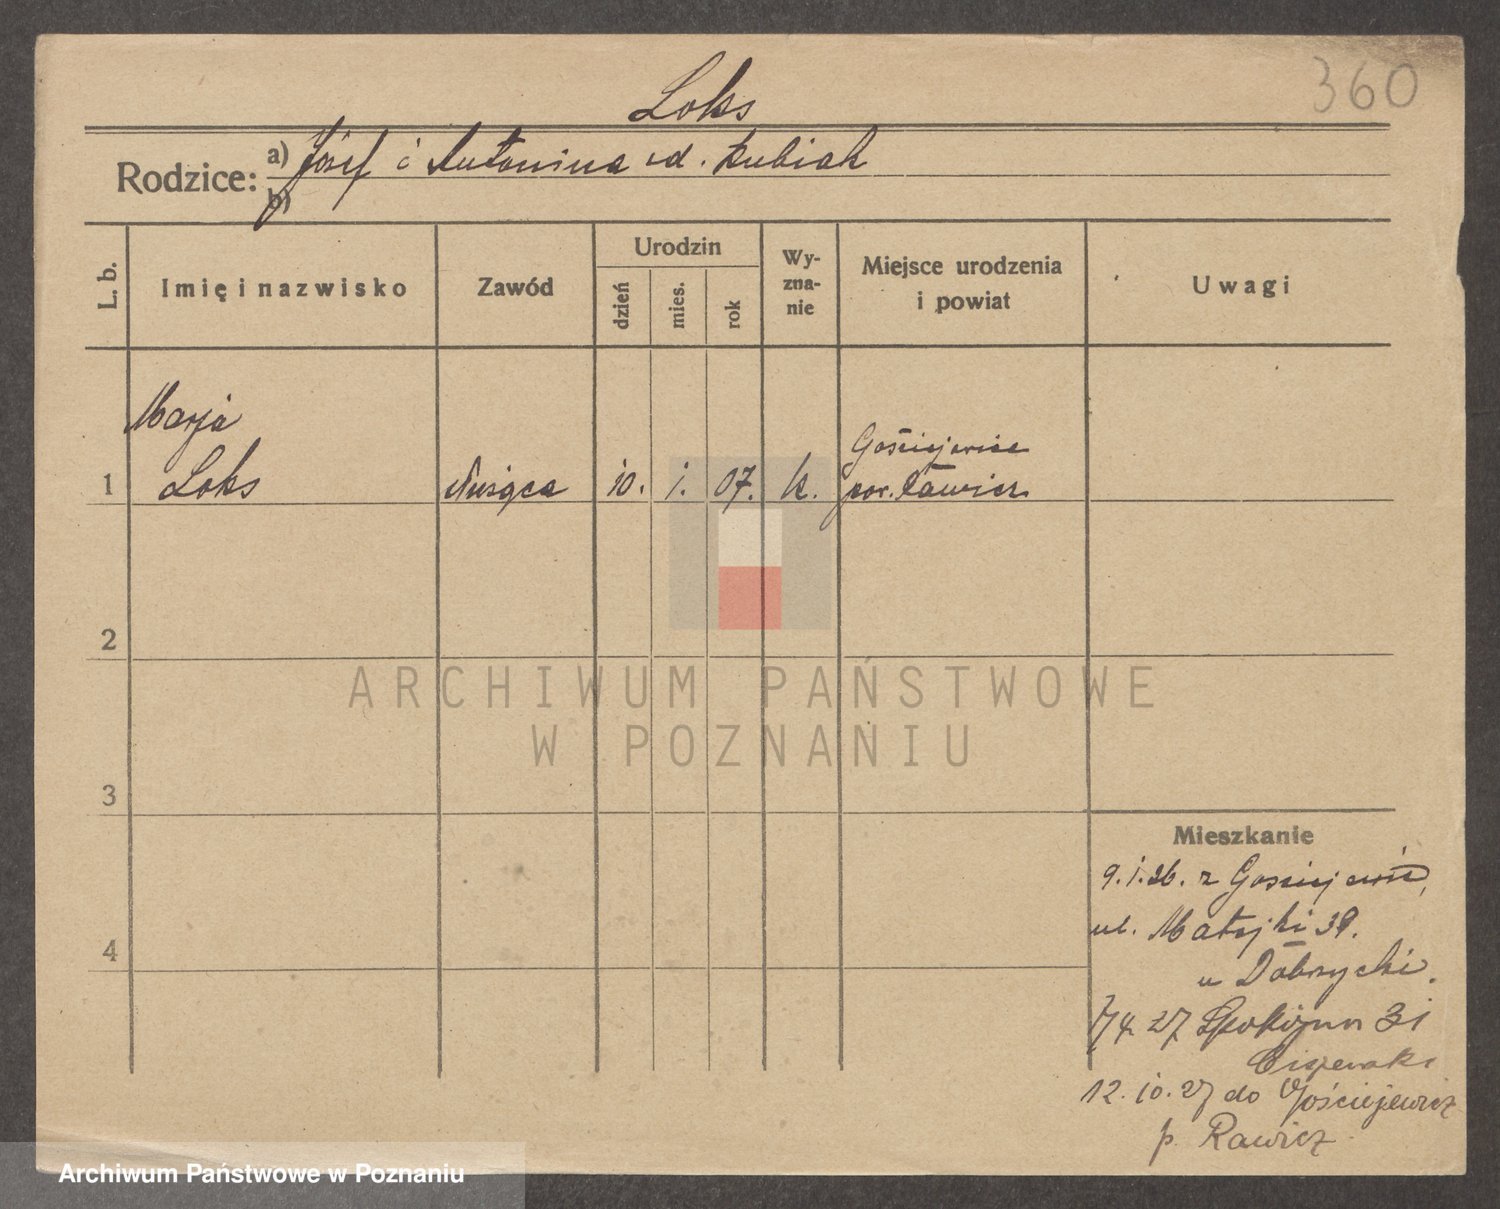 360
Loks
Rodzice: a) Józef i Antonina
b)
L. b.
Imię i nazwisko
Zawód
Urodzin
dzień
mies.
rok
Wy-
zna-
nie
Miejsce urodzenia
i powiat
Uwagi
Marja
Gościejewice
1 Loks służąca 10. 1. 07. k. pow. Rawicz
2
3
4
ARCHIWUM PAŃSTWOWE
W POZNANIU
Mieszkanie
9.1.26. z Gosciejewic,
ul. Matejki 39.
u Dobrzycki.
4 27 Spokojna 31
12.10.27 do Gościejewicz
p. Rawicz
Archiwum Państwowe w Poznaniu